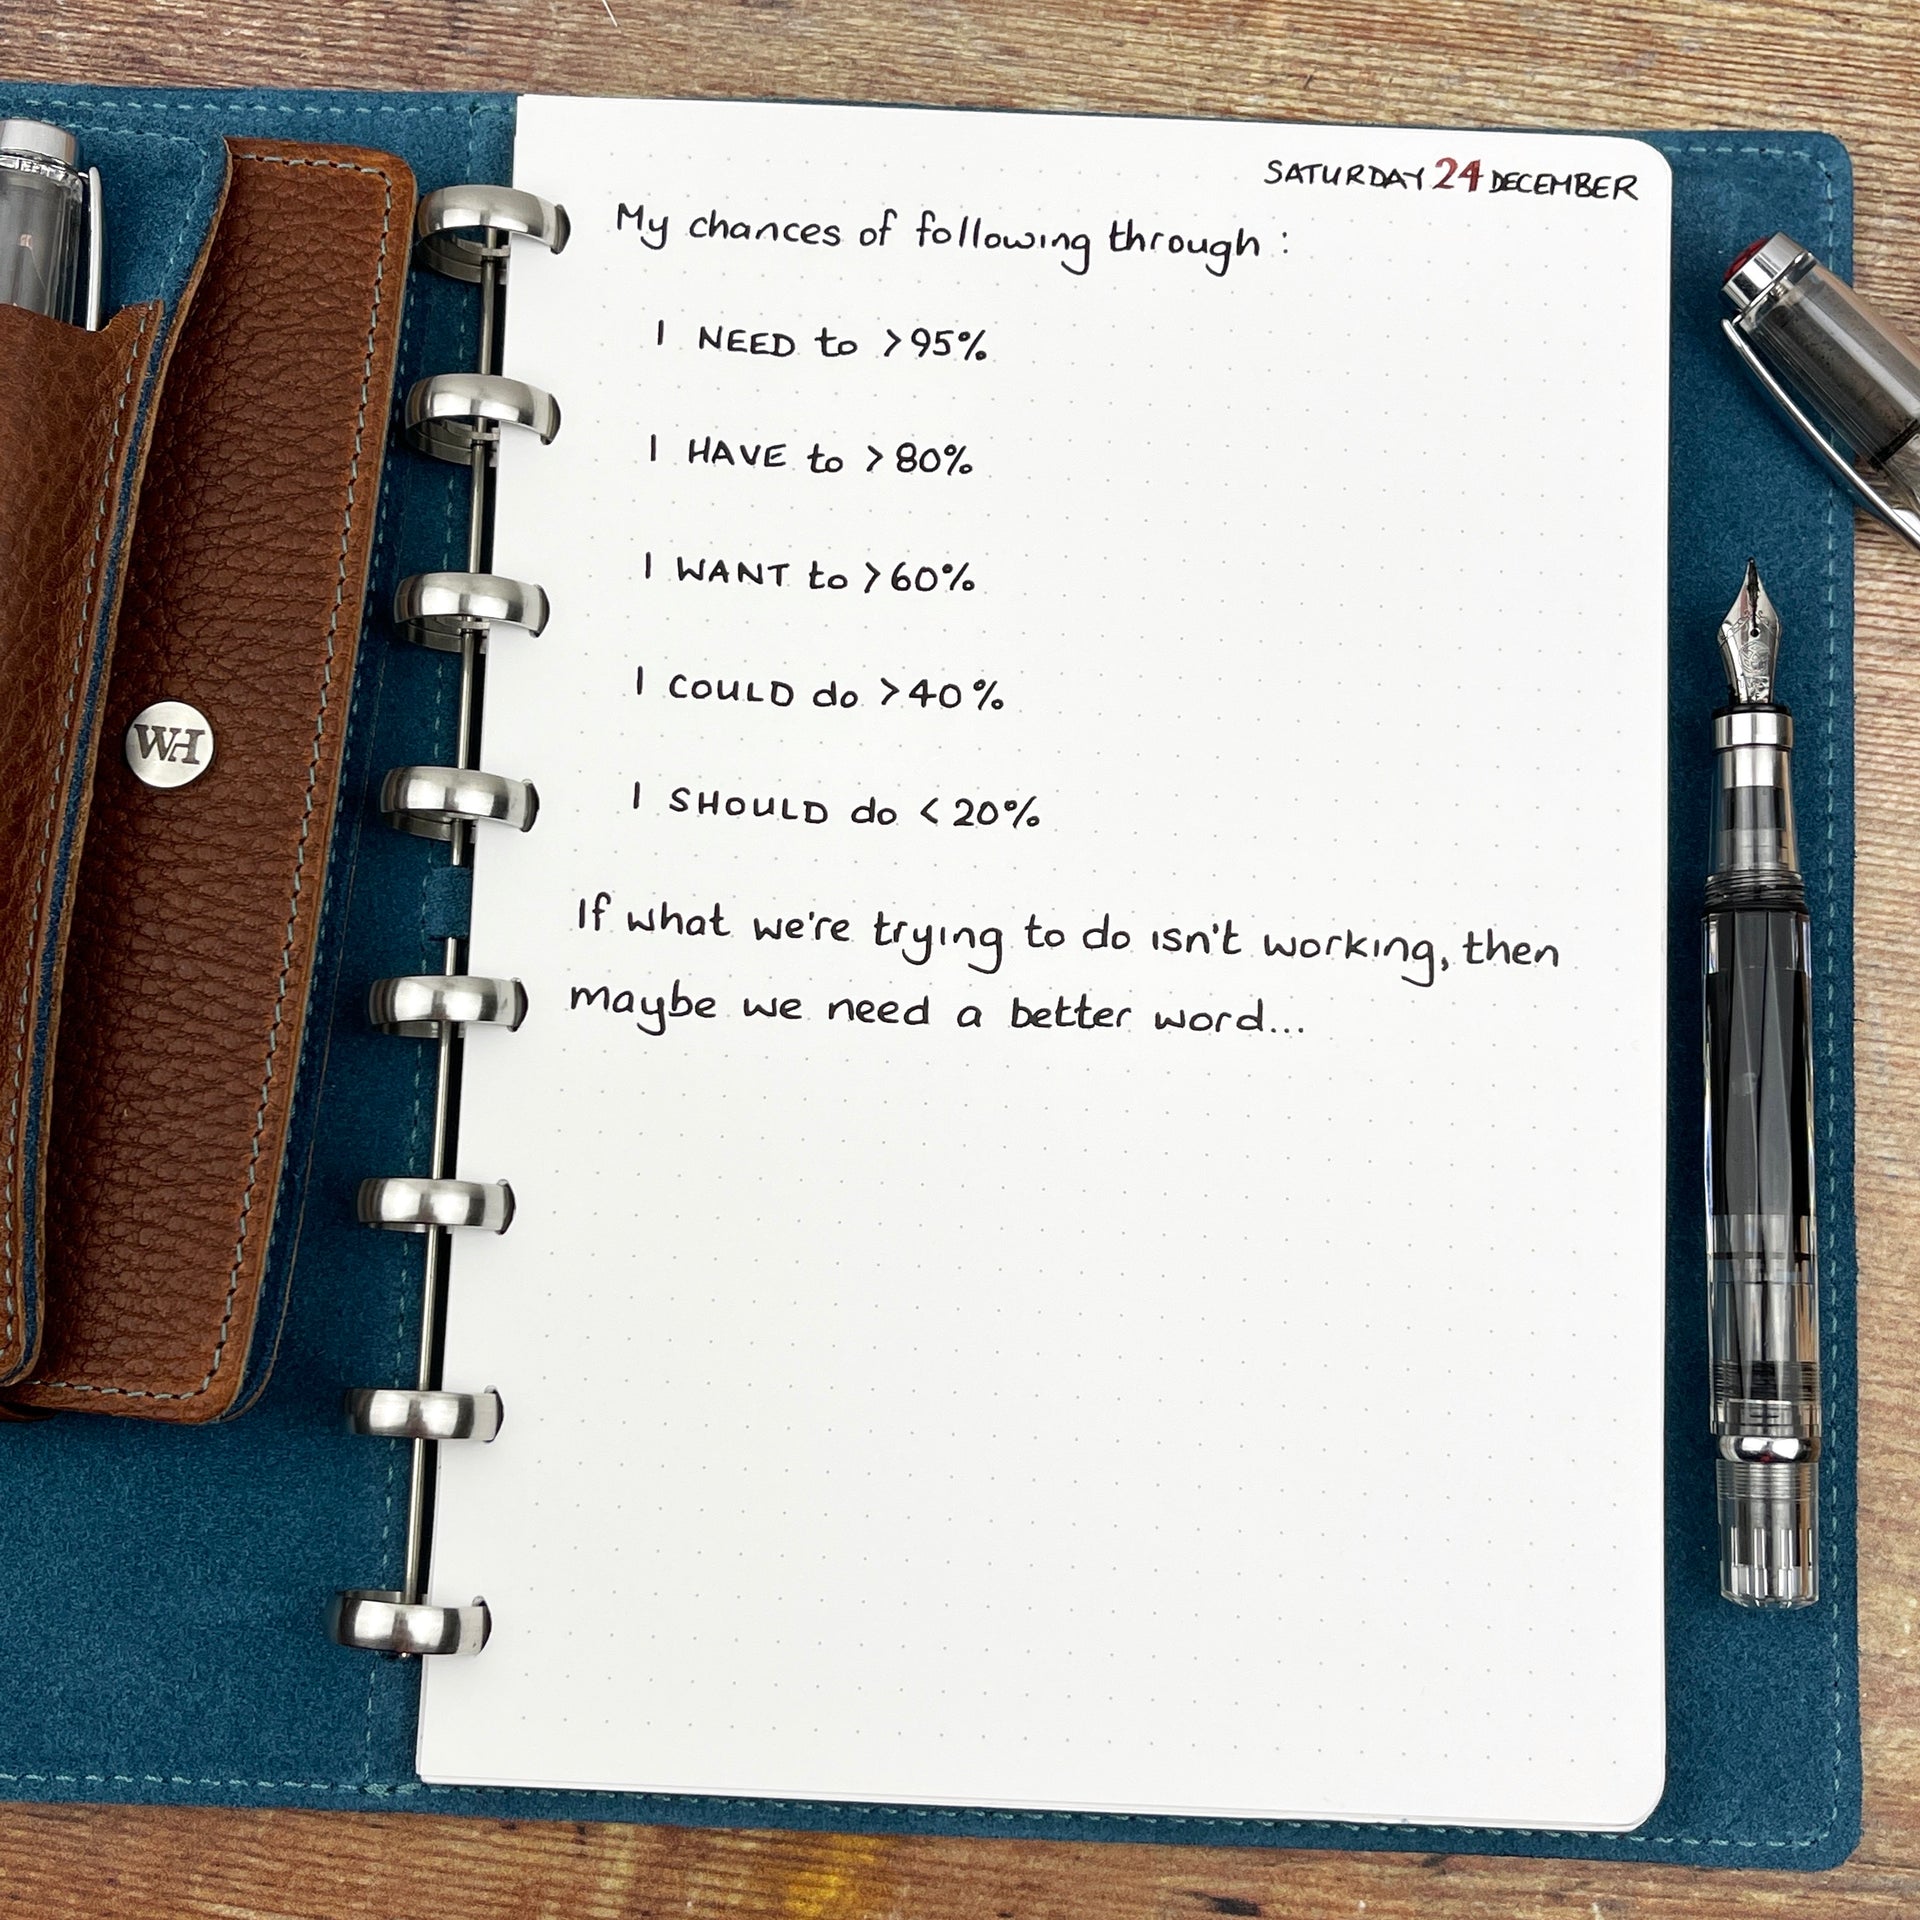 SATURDAY 24 DECEMBER
My chances of following through :
I NEED to >95%
I HAVE to >80%
I WANT to >60%
I COULD do >40%
I SHOULD do <20%
If what we're trying to do isn't working, then
maybe we need a better word...
WH